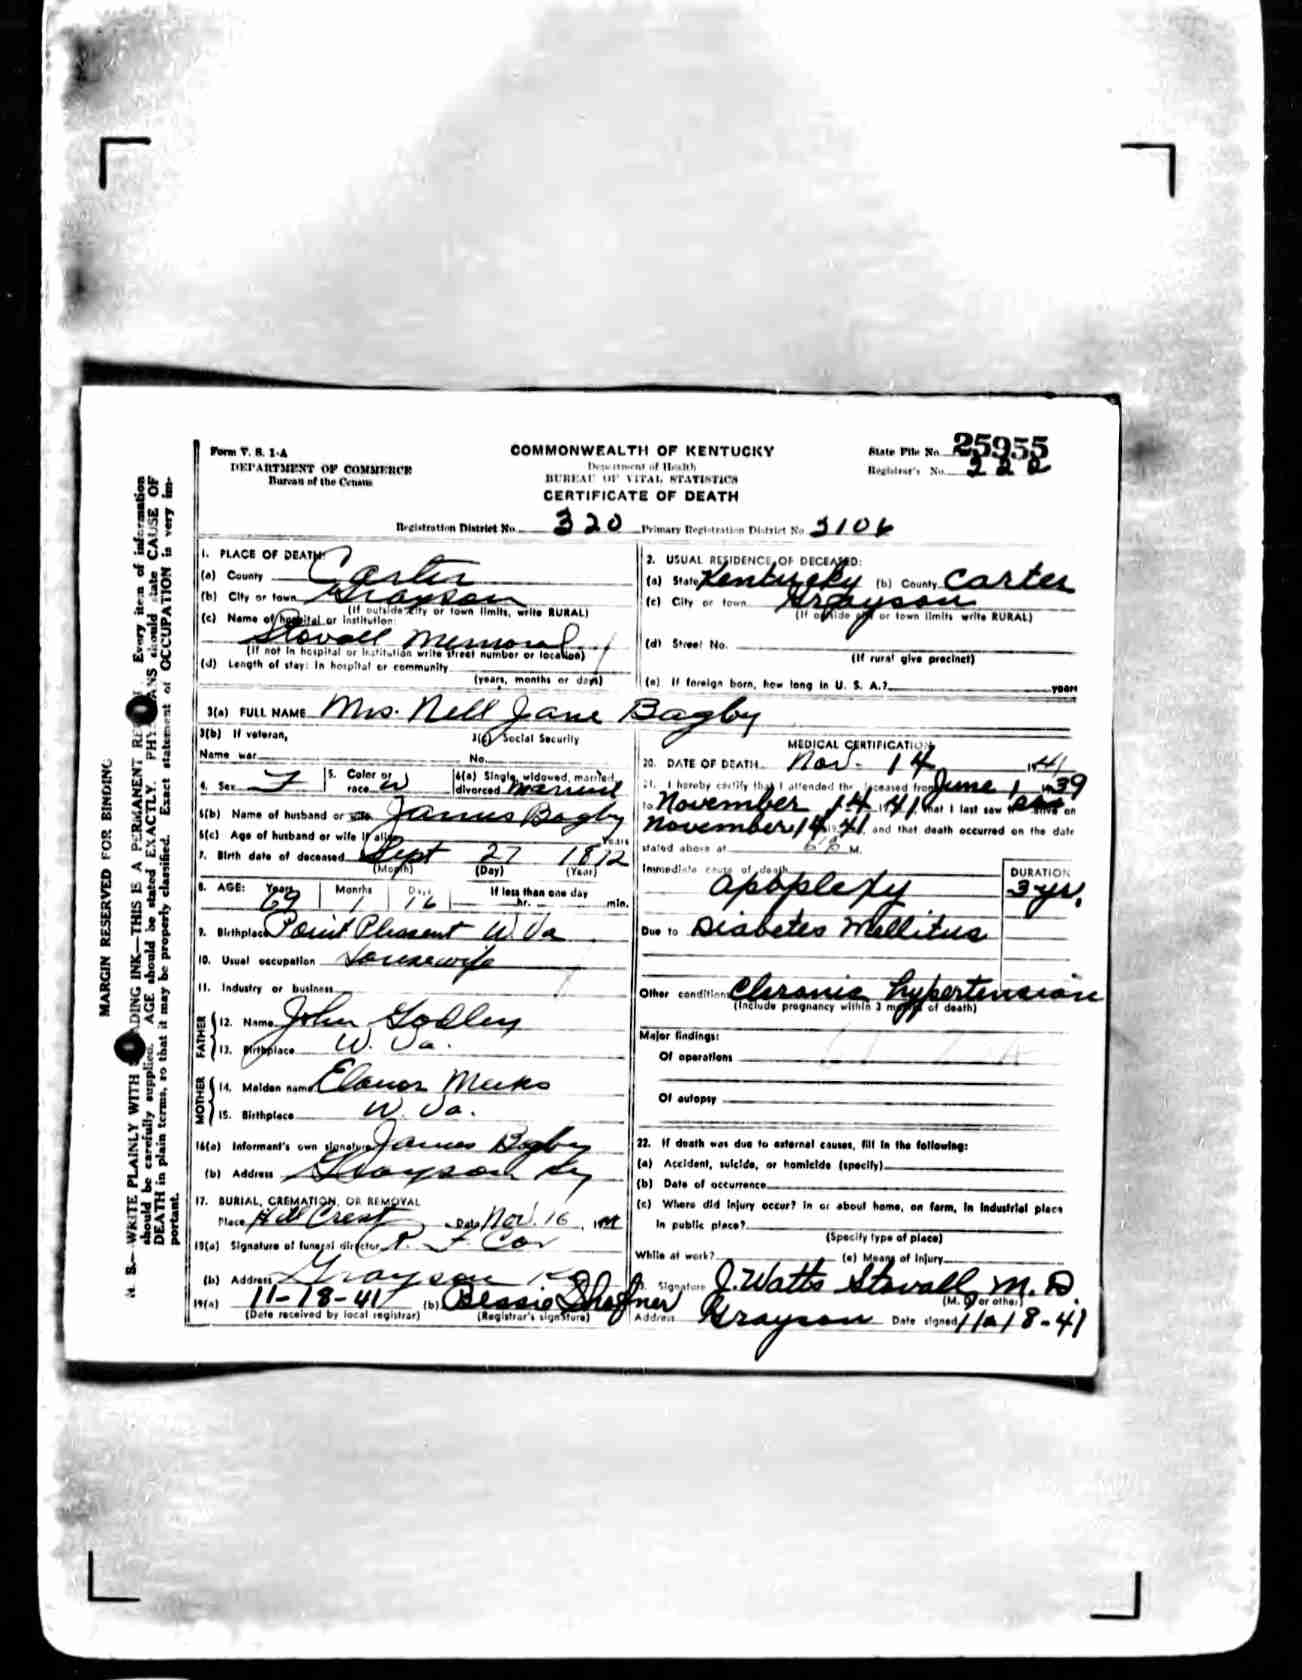 Form V. S. 1-A
DEPARTMENT OF COMMERCE
Bureau of the Census
COMMONWEALTH OF KENTUCKY
Department of Health
BUREAU OF VITAL STATISTICS
CERTIFICATE OF DEATH
State File No. 25955
Registrar's No. 222
Registration District No. 320 Primary Registration District No. 3106
MARGIN RESERVED FOR BINDING
N. B.—WRITE PLAINLY WITH ADING INK—THIS IS A PERMANENT Every item of information
should be carefully supplied. AGE should be stated EXACTLY. should state CAUSE OF
DEATH in plain terms, so that it may be properly classified. Exact statement of OCCUPATION is very im-
portant.
1. PLACE OF DEATH:
(a) County Carter
(b) City or town Grayson
(If outside city or town limits, write RURAL)
(c) Name of hospital or institution:
Stovall Memorial
(If not in hospital or institution write street number or location)
(d) Length of stay: In hospital or community
(years, months or days)
2. USUAL RESIDENCE OF DECEASED:
(a) State Kentucky (b) County Carter
(c) City or town Grayson
(If outside city or town limits write RURAL)
(d) Street No.
(If rural give precinct)
(e) If foreign born, how long in U. S. A.? years
3(a) FULL NAME Mrs. Nell Jane Bagby
3(b) If veteran,
Name war
3(c) Social Security
No.
4. Sex F 5. Color or race W 6(a) Single, widowed, married, divorced married
6(b) Name of husband or wife James Bagby
6(c) Age of husband or wife if alive years
7. Birth date of deceased Sept 27 1872
(Month) (Day) (Year)
8. AGE: Years Months Days If less than one day
69 1 16 hr. min.
9. Birthplace Point Pleasent W. Va
10. Usual occupation Housewife
11. Industry or business
FATHER
12. Name John Godley
13. Birthplace W. Va.
MOTHER
14. Maiden name Elanor Meeks
15. Birthplace W. Va.
16(a) Informant's own signature James Bagby
(b) Address Grayson Ky
17. BURIAL, CREMATION, OR REMOVAL
Place Hill Crest Date Nov. 16, 19
18(a) Signature of funeral director R. F. Cox
(b) Address Grayson Ky
19(a) 11-18-41 (b) Bessie Shafner
(Date received by local registrar) (Registrar's signature)
MEDICAL CERTIFICATION
20. DATE OF DEATH Nov. 14 1941
21. I hereby certify that I attended the deceased from June 1 1939
to November 14 1941, that I last saw alive on
November 14 1941, and that death occurred on the date
stated above at M.
Immediate cause of death DURATION
apoplexy 3 yr.
Due to Diabetes Mellitus
Other conditions Chronic hypertension
(Include pregnancy within 3 months of death)
Major findings:
Of operations
Of autopsy
22. If death was due to external causes, fill in the following:
(a) Accident, suicide, or homicide (specify)
(b) Date of occurrence
(c) Where did injury occur? In or about home, on farm, in industrial place
in public place?
(Specify type of place)
While at work? (e) Means of injury
Signature J. Watts Stovall, M. D.
(M. D. or other)
Address Grayson Date signed 11-18-41